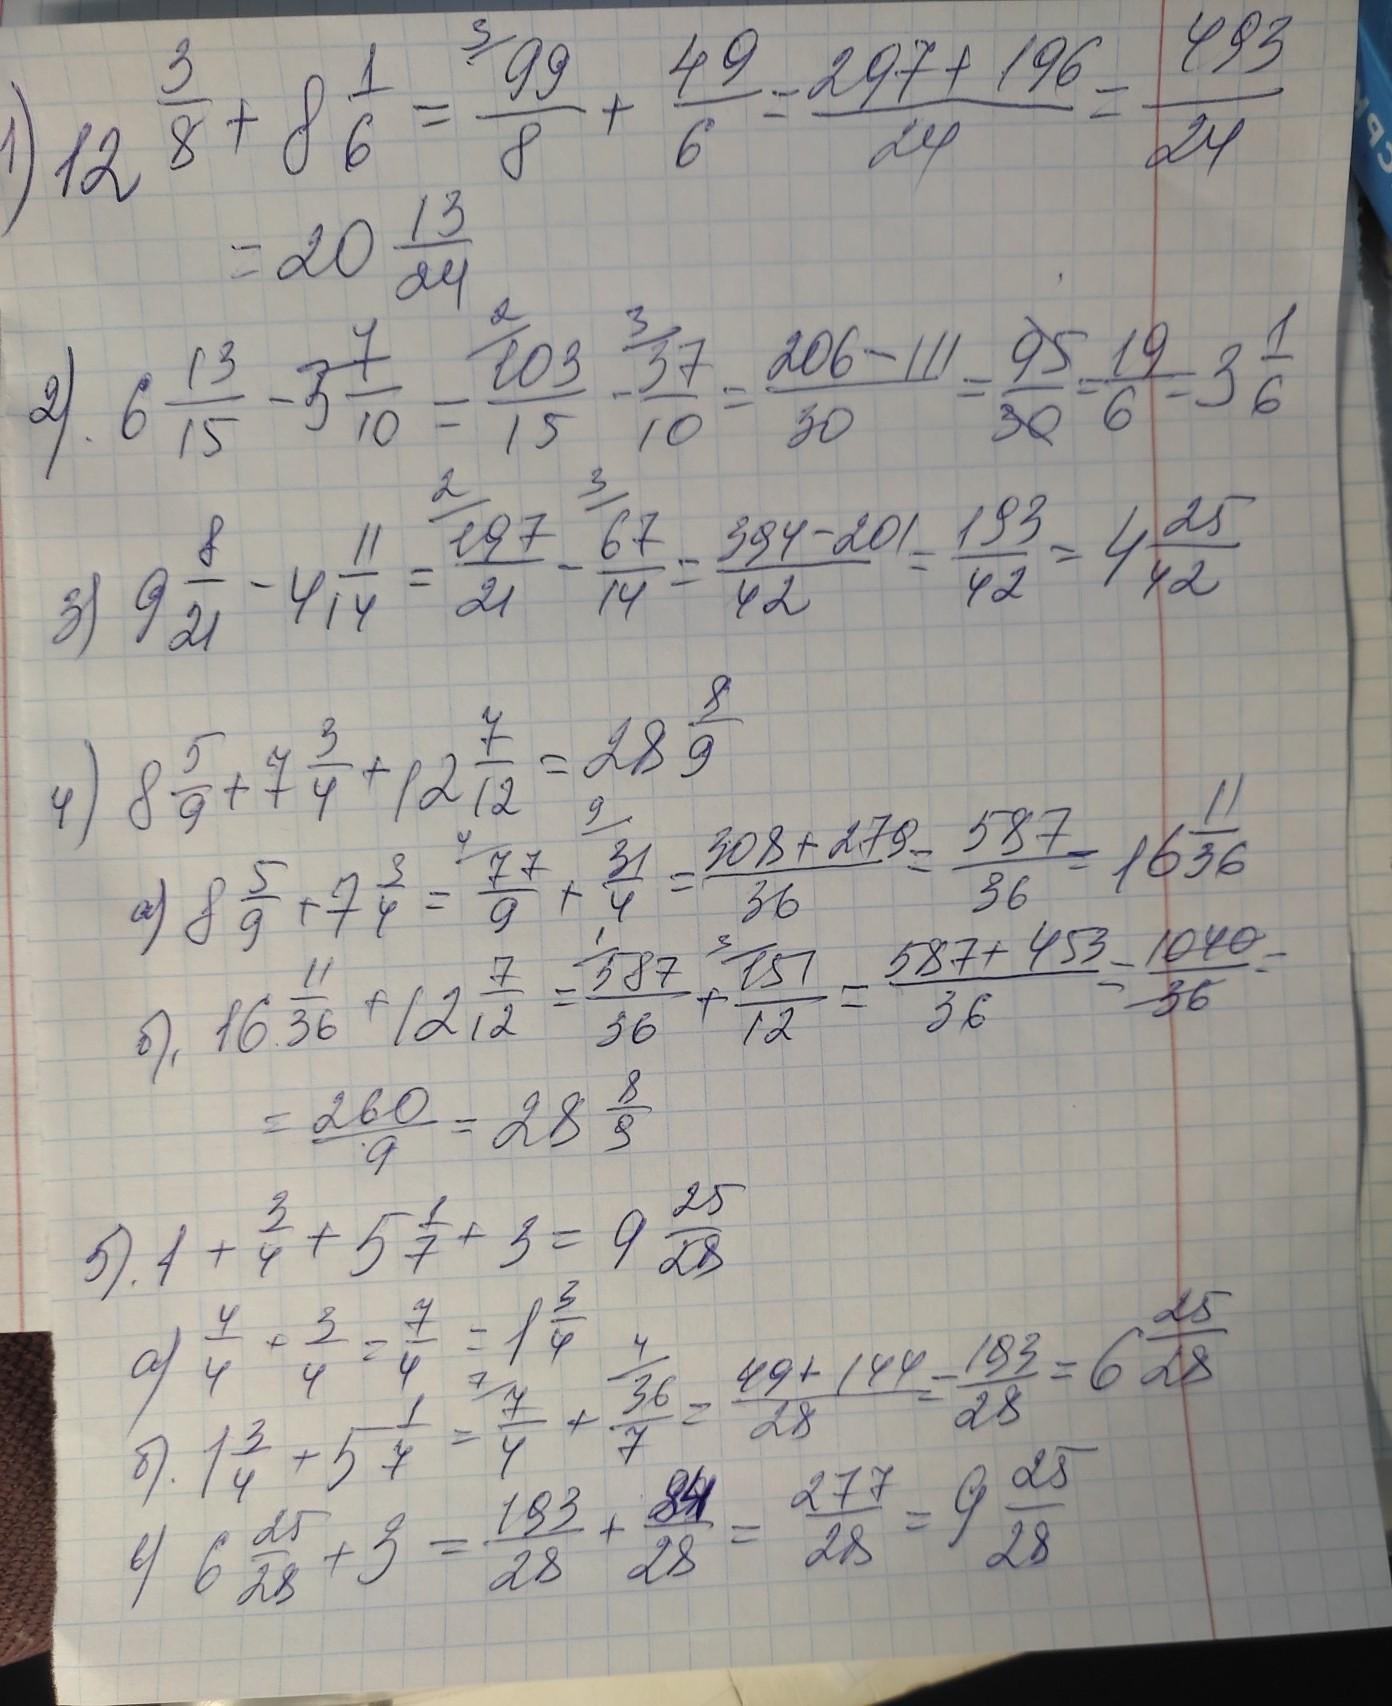 1) 12 3/8 + 8 1/6 = 3/ 99/8 + 49/6 = (297+196)/24 = 493/24
= 20 13/24
2). 6 13/15 - 3 7/10 = 2/ 103/15 - 3/ 37/10 = (206-111)/30 = 95/30 = 19/6 = 3 1/6
3) 9 8/21 - 4 11/14 = 2/ 197/21 - 3/ 67/14 = (394-201)/42 = 193/42 = 4 25/42
4) 8 5/9 + 7 3/4 + 12 7/12 = 28 8/9
а) 8 5/9 + 7 3/4 = 4/ 77/9 + 9/ 31/4 = (308+279)/36 = 587/36 = 16 11/36
б). 16 11/36 + 12 7/12 = 1/ 587/36 + 3/ 151/12 = (587+453)/36 = 1040/36 =
= 260/9 = 28 8/9
5). 1 + 3/4 + 5 1/7 + 3 = 9 25/28
а) 4/4 + 3/4 = 7/4 = 1 3/4
б). 1 3/4 + 5 1/7 = 7/ 7/4 + 4/ 36/7 = (49+144)/28 = 193/28 = 6 25/28
в) 6 25/28 + 3 = 193/28 + 84/28 = 277/28 = 9 25/28